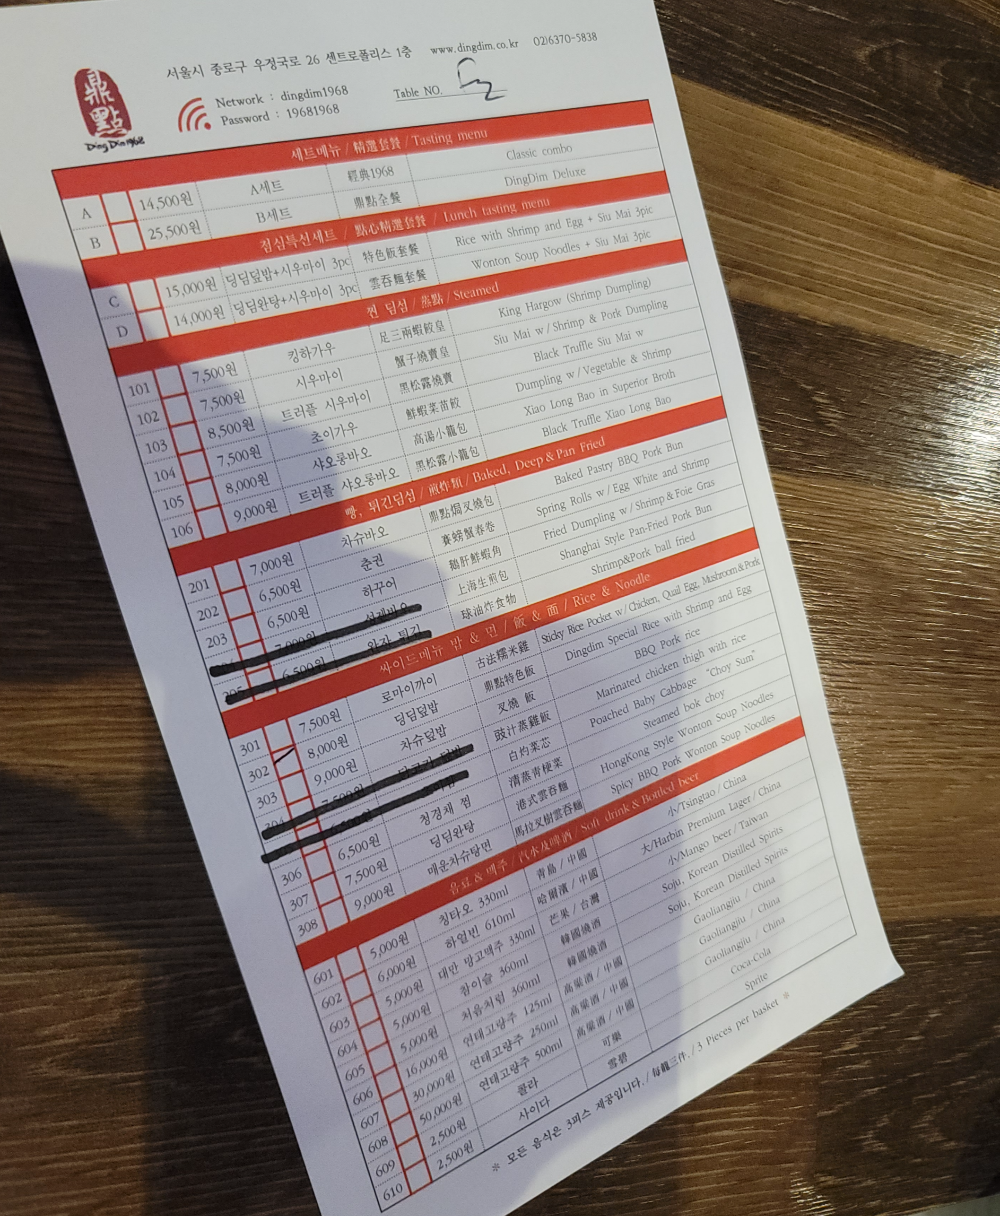 서울시 종로구 우정국로 26 센트로폴리스 1층 www.dingdim.co.kr 02)6370-5838
鼎點
Ding Dim 1968
Network : dingdim1968
Password : 19681968
Table NO.
세트메뉴 / 精選套餐 / Tasting menu
A 14,500원 A세트 經典1968 Classic combo
B 25,500원 B세트 鼎點全餐 DingDim Deluxe
점심특선세트 / 點心精選套餐 / Lunch tasting menu
C 15,000원 딩딤덮밥+시우마이 3pc 特色飯套餐 Rice with Shrimp and Egg + Siu Mai 3pic
D 14,000원 딩딤완탕+시우마이 3pc 雲吞麵套餐 Wonton Soup Noodles + Siu Mai 3pic
찐 딤섬 / 蒸點 / Steamed
101 7,500원 킹하가우 足三兩蝦餃皇 King Hargow (Shrimp Dumpling)
102 7,500원 시우마이 蟹子燒賣皇 Siu Mai w/Shrimp & Pork Dumpling
103 8,500원 트러플 시우마이 黑松露燒賣 Black Truffle Siu Mai w
104 7,500원 초이가우 鮮蝦菜苗餃 Dumpling w/Vegetable & Shrimp
105 8,000원 샤오롱바오 高湯小籠包 Xiao Long Bao in Superior Broth
106 9,000원 트러플 샤오롱바오 黑松露小籠包 Black Truffle Xiao Long Bao
빵, 튀긴딤섬 / 煎炸類 / Baked, Deep & Pan Fried
201 7,000원 차슈바오 鼎點焗叉燒包 Baked Pastry BBQ Pork Bun
202 6,500원 춘권 賽螃蟹春卷 Spring Rolls w/Egg White and Shrimp
203 6,500원 하꾸어 鵝肝鮮蝦角 Fried Dumpling w/Shrimp&Foie Gras
7,000원 上海生煎包 Shanghai Style Pan-Fried Pork Bun
205 6,500원 완자 튀김 球油炸食物 Shrimp&Pork ball fried
싸이드메뉴 밥 & 면 / 飯 & 面 / Rice & Noodle
301 7,500원 로마이까이 古法糯米雞 Sticky Rice Pocket w/Chicken, Quail Egg, Mushroom&Pork
302 8,000원 딩딤덮밥 鼎點特色飯 Dingdim Special Rice with Shrimp and Egg
303 9,000원 차슈덮밥 叉燒 飯 BBQ Pork rice
304 7,500원 豉汁蒸雞飯 Marinated chicken thigh with rice
白灼菜芯 Poached Baby Cabbage "Choy Sum"
306 6,500원 청경채 찜 清蒸青梗菜 Steamed bok choy
307 7,500원 딩딤완탕 港式雲吞麵 HongKong Style Wonton Soup Noodles
308 9,000원 매운차슈탕면 馬拉叉樹雲吞麵 Spicy BBQ Pork Wonton Soup Noodles
음료 & 맥주 / 汽水及啤酒 / Soft drink & Bottled beer
601 5,000원 칭타오 330ml 青島 / 中國 小/Tsingtao / China
602 6,000원 하얼빈 610ml 哈爾濱 / 中國 大/Harbin Premium Lager / China
603 5,000원 대만 망고맥주 330ml 芒果 / 台灣 小/Mango beer / Taiwan
604 5,000원 참이슬 360ml 韓國燒酒 Soju, Korean Distilled Spirits
605 5,000원 처음처럼 360ml 韓國燒酒 Soju, Korean Distilled Spirits
606 16,000원 연태고량주 125ml 高粱酒 / 中國 Gaoliangjiu / China
607 30,000원 연태고량주 250ml 高粱酒 / 中國 Gaoliangjiu / China
608 50,000원 연태고량주 500ml 高粱酒 / 中國 Gaoliangjiu / China
609 2,500원 콜라 可樂 Coca-Cola
610 2,500원 사이다 雪碧 Sprite
※ 모든 음식은 3피스 제공입니다. / 每籠三件. / 3 Pieces per basket ※